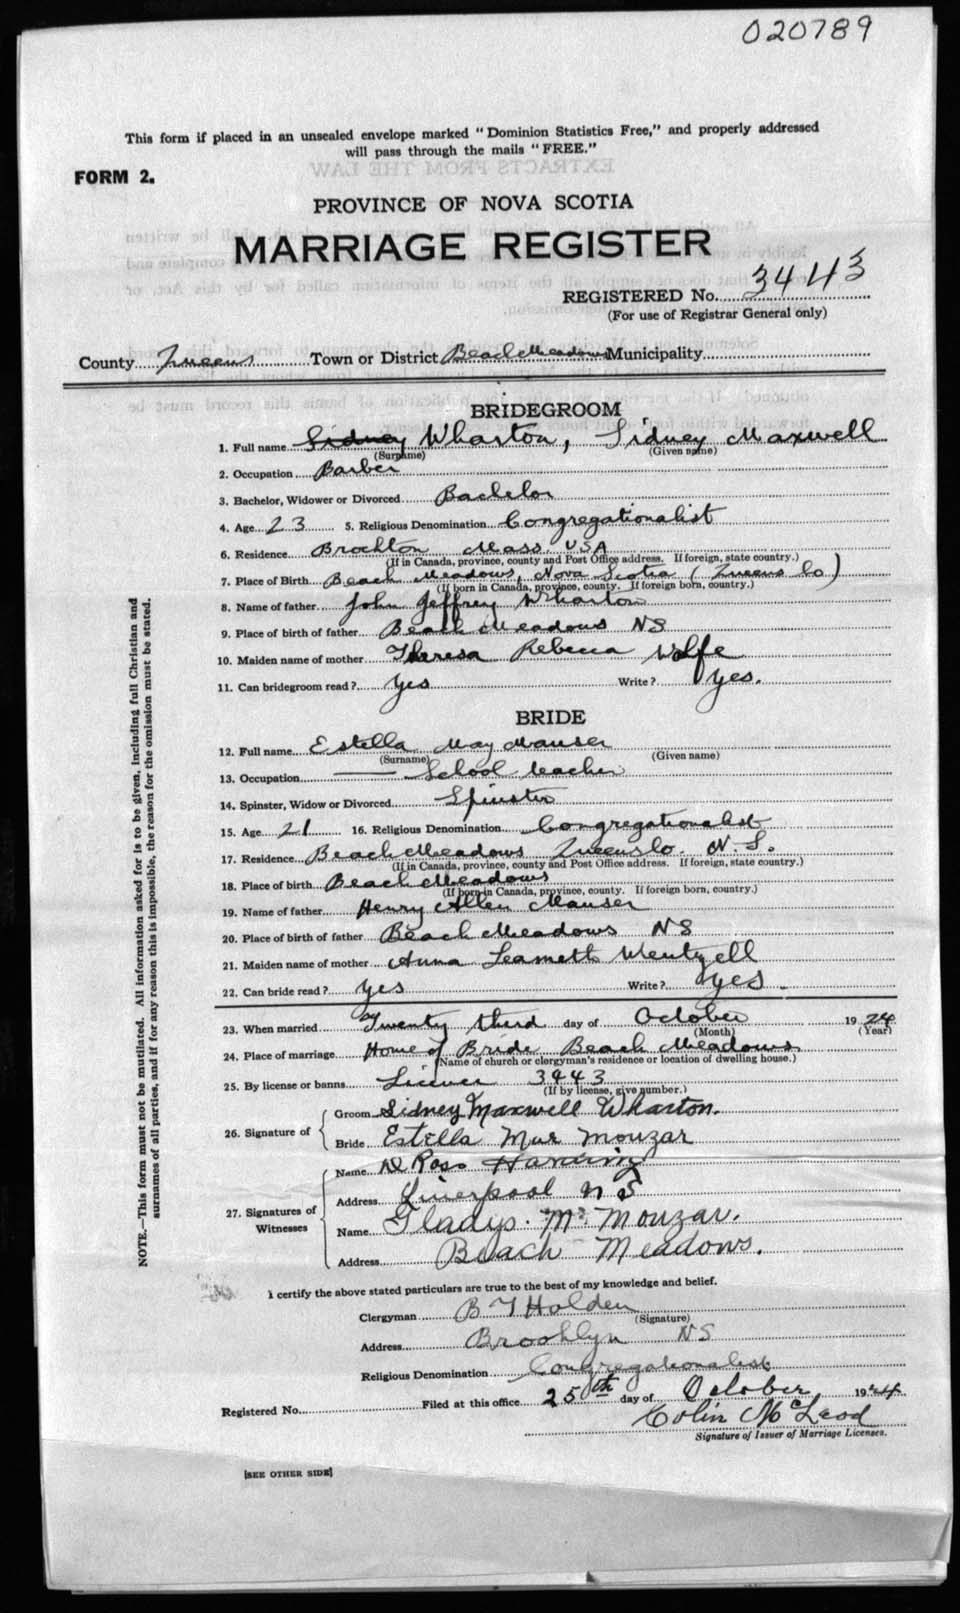 020789
This form if placed in an unsealed envelope marked "Dominion Statistics Free," and properly addressed
will pass through the mails "FREE."
FORM 2.
PROVINCE OF NOVA SCOTIA
MARRIAGE REGISTER
REGISTERED No. 3443
(For use of Registrar General only)
County Queens Town or District Beach Meadows Municipality
BRIDEGROOM
1. Full name Sidney Wharton, Sidney Maxwell
(Surname) (Given name)
2. Occupation Barber
3. Bachelor, Widower or Divorced Bachelor
4. Age 23 5. Religious Denomination Congregationalist
6. Residence Brockton Mass. USA
(If in Canada, province, county and Post Office address. If foreign, state country.)
7. Place of Birth Beach Meadows, Nova Scotia (Queens Co)
(If born in Canada, province, county. If foreign born, country.)
8. Name of father John Jeffrey Wharton
9. Place of birth of father Beach Meadows NS
10. Maiden name of mother Theresa Rebecca Wolfe
11. Can bridegroom read? yes Write? yes.
BRIDE
12. Full name Estella May Mauser
(Surname) (Given name)
13. Occupation School teacher
14. Spinster, Widow or Divorced Spinster
15. Age 21 16. Religious Denomination Congregationalist
17. Residence Beach Meadows Queens Co. N.S.
(If in Canada, province, county and Post Office address. If foreign, state country.)
18. Place of birth Beach Meadows
(If born in Canada, province, county. If foreign born, country.)
19. Name of father Henry Allen Mauser
20. Place of birth of father Beach Meadows NS
21. Maiden name of mother Anna Wentzell
22. Can bride read? yes Write? yes.
23. When married Twenty third day of October 1924
(Month) (Year)
24. Place of marriage Home of Bride Beach Meadows
(Name of church or clergyman's residence or location of dwelling house.)
25. By license or banns License 3443
(If by license, give number.)
26. Signature of
Groom Sidney Maxwell Wharton.
Bride Estella Mae Mouzar
27. Signatures of Witnesses
Name D Ross Harding
Address Liverpool N S
Name Gladys. M. Mouzar.
Address Beach Meadows.
I certify the above stated particulars are true to the best of my knowledge and belief.
Clergyman B T Holden
(Signature)
Address Brooklyn NS
Religious Denomination Congregationalist
Registered No. Filed at this office 25th day of October 1924
Colin McLeod
Signature of Issuer of Marriage Licenses.
[SEE OTHER SIDE]
NOTE.—This form must not be mutilated. All information asked for is to be given, including full Christian and
surnames of all parties, and if for any reason this is impossible, the reason for the omission must be stated.